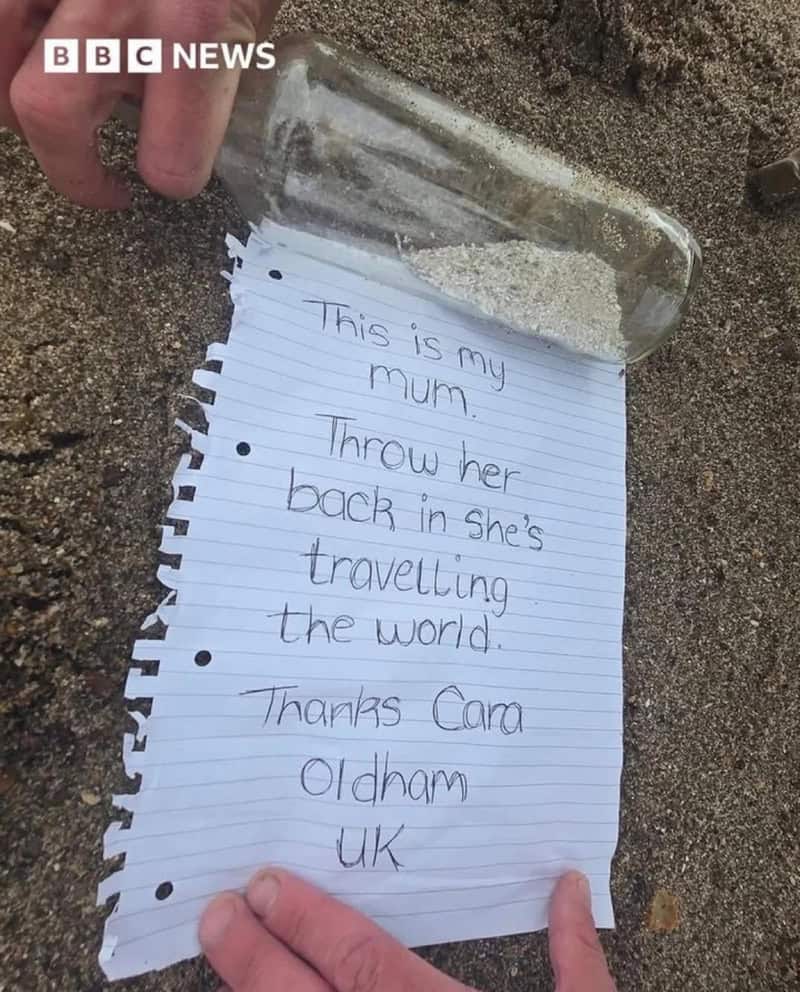 BBC NEWS
This is my
mum.
Throw her
back in She's
travelling
the world.
Thanks Cara
Oldham
UK